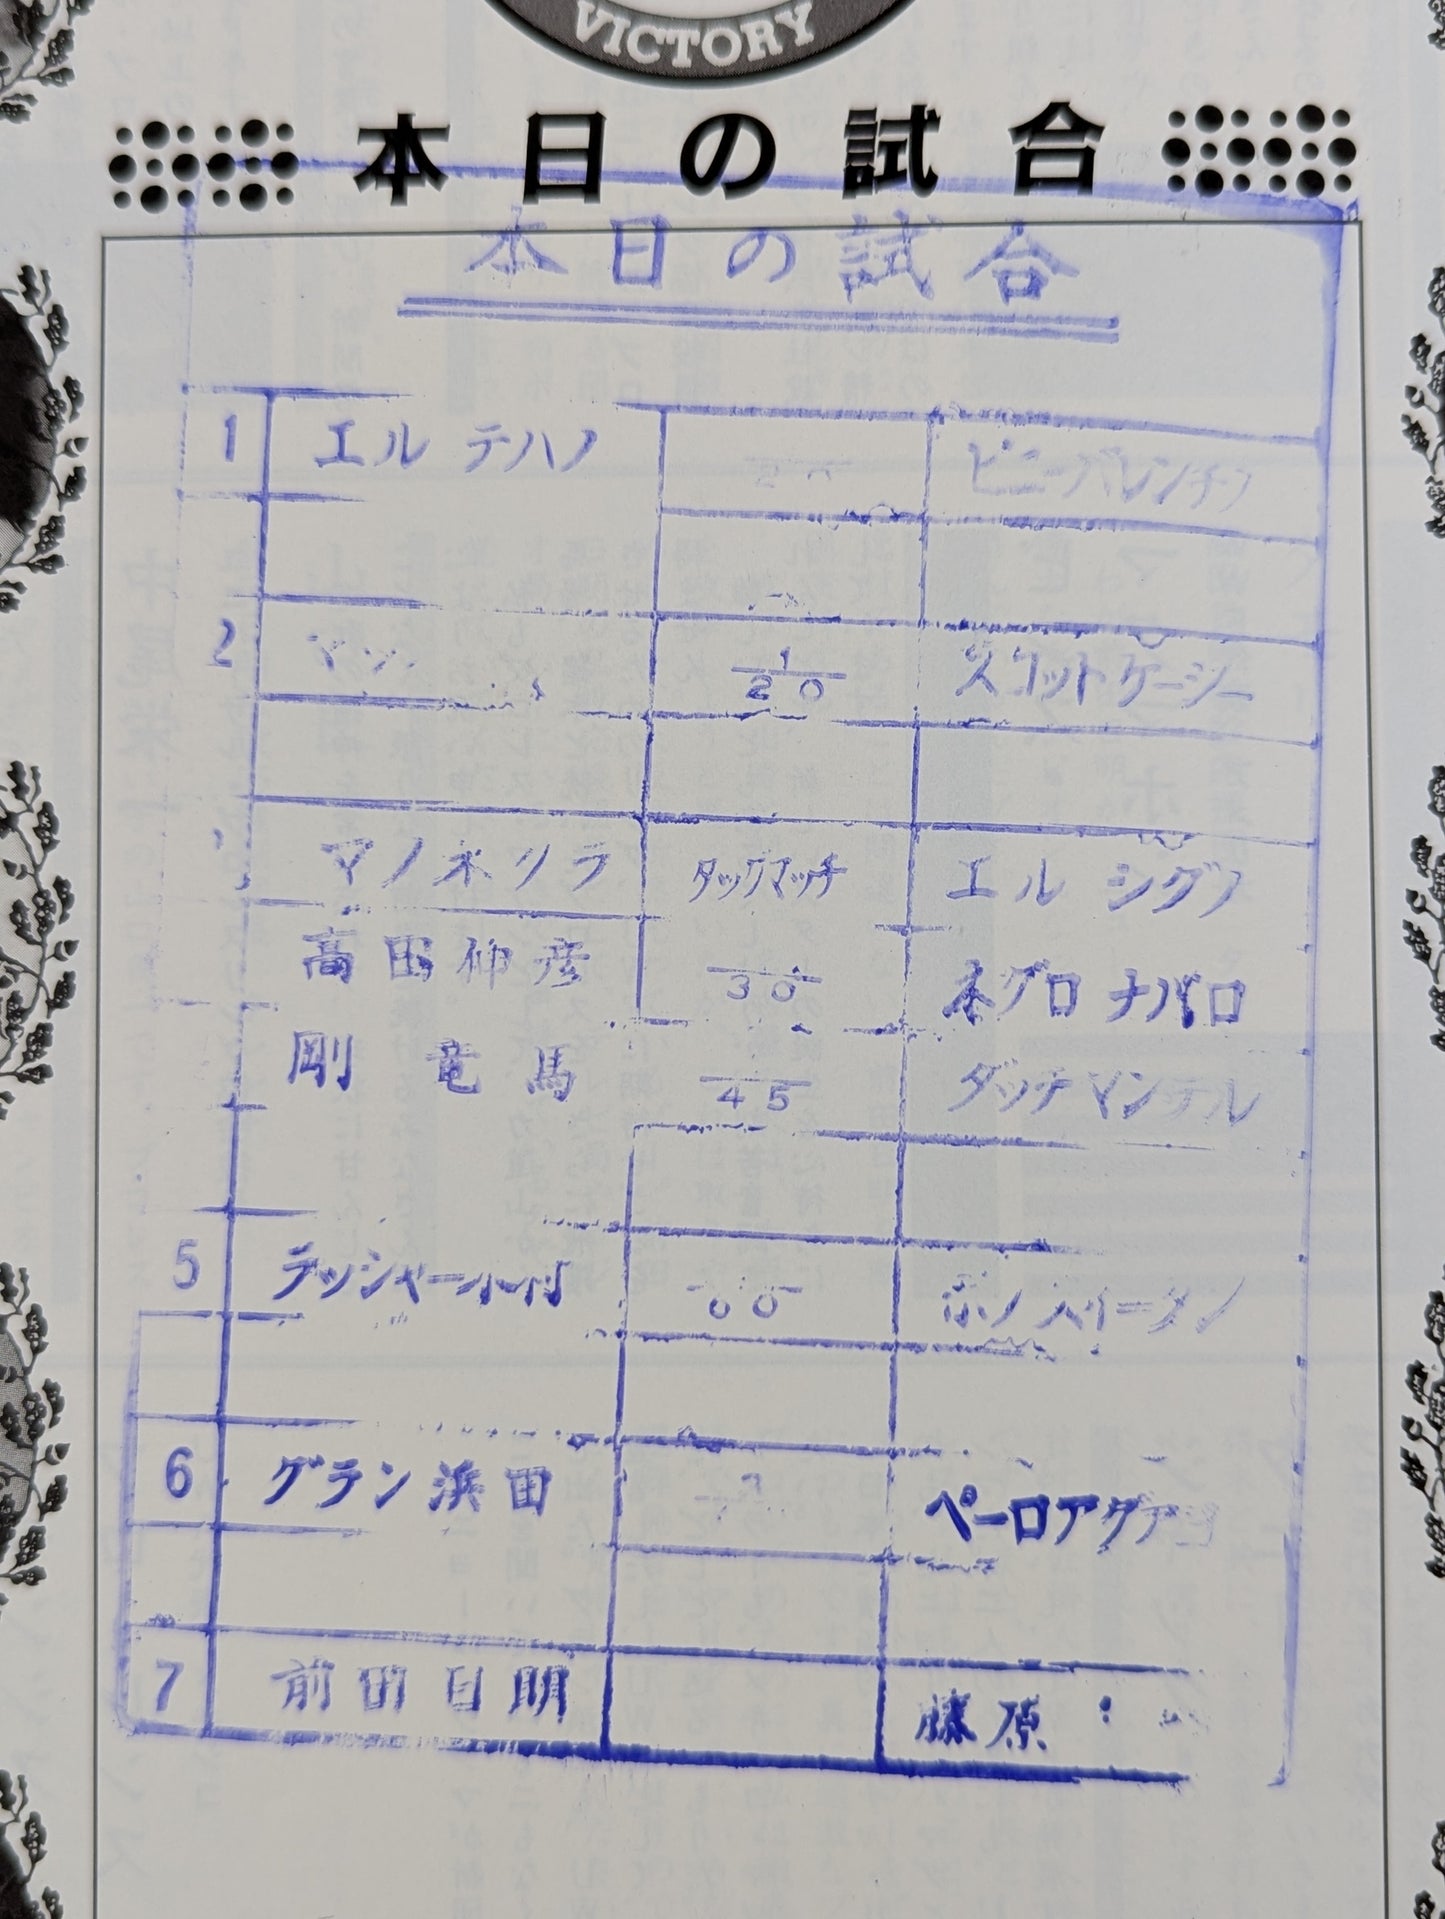 VICTORY
本日の試合
本日の試合
1 エル テハノ 20 ビニーバレンチノ
2 1 20 スコットケーシー
マノネリラ タッグマッチ エル シグノ
高田伸彦 30 ネグロ ナバロ
剛 竜馬 45 ダッチマンテル
5 ラッシャー木村 ボブ スイータン
6 グラン浜田 ペーロアグアヨ
7 前田日明 藤原